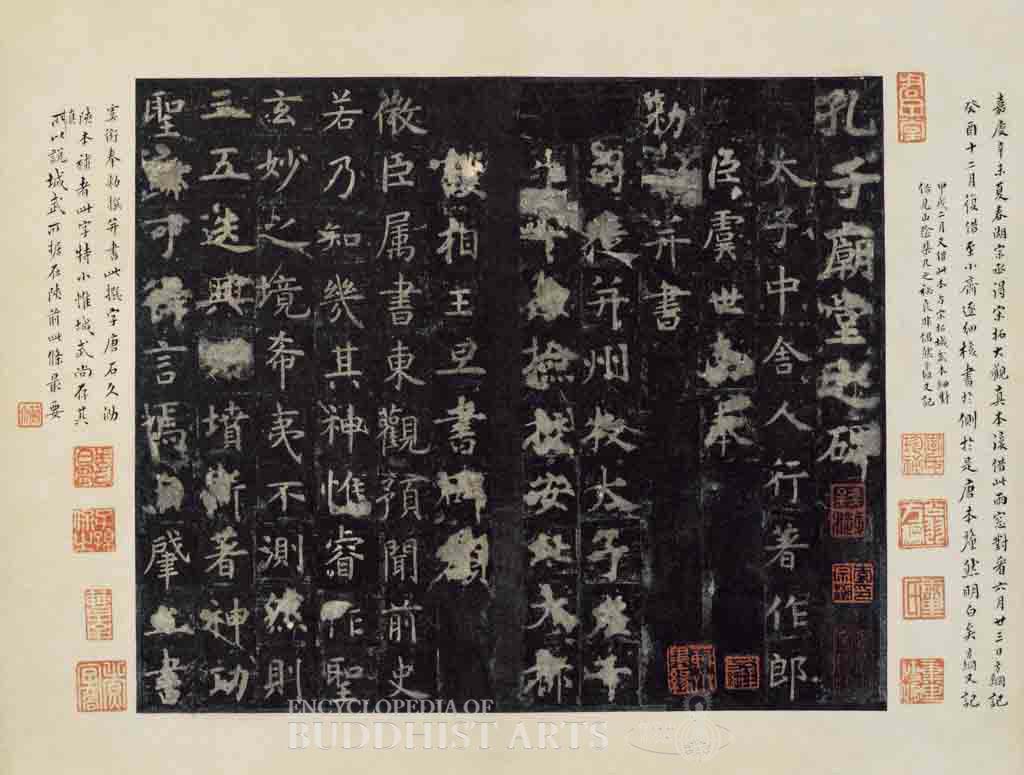 嘉慶辛未夏春湖宗丞得宋拓大觀真本復借此雨窓對看六月廿三日方綱記
癸酉十二月復借至小齋逐細核書於側於是唐本犛然明白矣方綱又記
甲戌二月又借此本与宋拓城武本細對
信是山陰棐几之秘良非偶然方綱又記
孔子廟堂之碑
太子中舍人行著作郎
臣虞世南奉
勅撰并書
司徒并州牧太子左千
牛率兼檢校安北大都
護相王旦書碑額
微臣属書東觀預聞前史
若乃知幾其神惟睿作聖
玄妙之境希夷不測然則
三五迭興典墳斯著神功
聖跡可得言焉自肇立書
銜奉勅撰并書此撰字唐石久泐
陝本補者此字特小惟城武尚存其真
所以說城武可據在陝前此條最要
ENCYCLOPEDIA OF
BUDDHIST ARTS